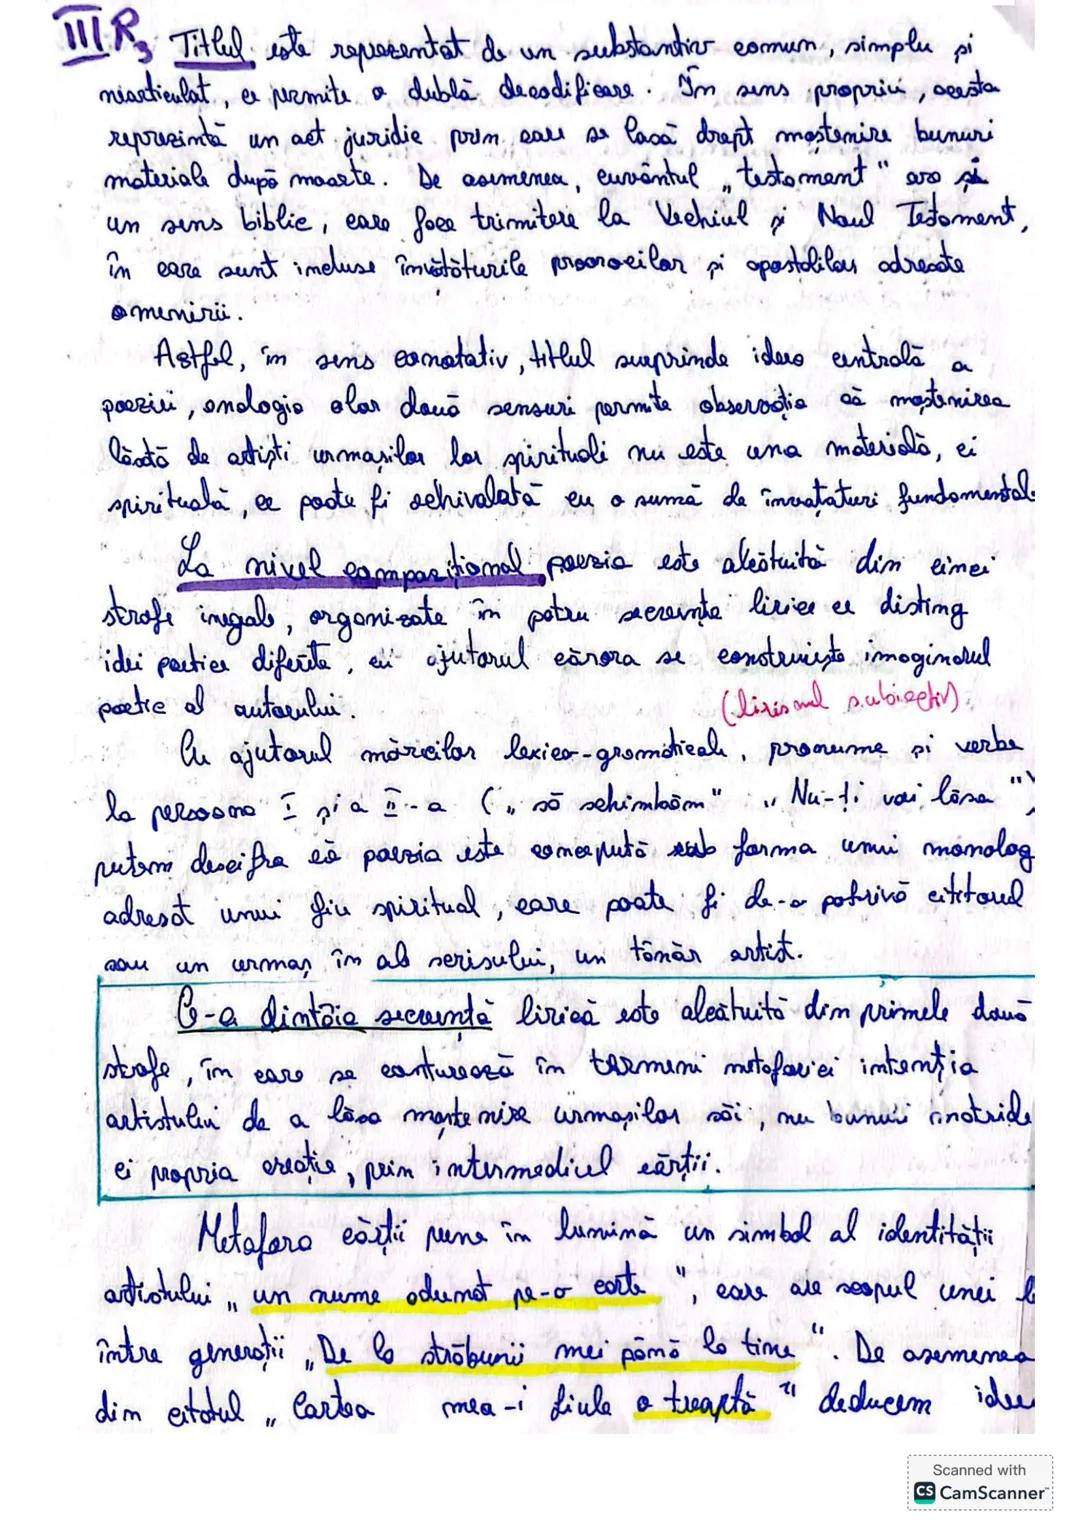 III R3 Titlul este reprezentat de un substantiv comun, simplu și
nearticulat, ce permite o dublă decodificare. În sens propriu, acesta
reprezintă un act juridic prin care se lasă drept moștenire bunuri
materiale după moarte. De asemenea, cuvântul „testament" are și
un sens biblic, care face trimitere la Vechiul și Noul Testament,
în care sunt incluse învățăturile proorocilor și apostolilor adresate
omenirii.
Astfel, în sens conotativ, titlul surprinde ideea centrală a
poeziei, analogia celor două sensuri permite observația că moștenirea
lăsată de artiști urmașilor lor spirituali nu este una materială, ci
spirituală, ce poate fi echivalată cu o sumă de învățături fundamental
La nivel compozițional poezia este alcătuită din cinci
strofe inegale, organizate în patru secvențe lirice ce disting
idei poetice diferite, cu ajutorul cărora se construiește imaginarul
poetic al autorului. (lirismul subiectiv)
Cu ajutorul mărcilor lexico-gramaticale, pronume și verbe
la persoana I și a II-a („să schimbăm" „Nu-ți voi lăsa")
putem descifra că poezia este concepută sub forma unui monolog
adresat unui fiu spiritual, care poate fi de-o potrivă cititorul
sau un urmaș în ale scrisului, un tânăr artist.
C-a dintâia secvență lirică este alcătuită din primele două
strofe, în care se conturează în termeni metaforici intenția
artistului de a lăsa moștenire urmașilor săi, nu bunuri materiale
ci propria creație, prin intermediul cărții.
Metafora cărții pune în lumină un simbol al identității
artistului „un nume adunat pe-o carte", care are scopul unei l
între generații „De la străbunii mei până la tine". De asemenea
din citatul „Cartea mea-i fiule o treaptă" deducem idee
Scanned with
CS CamScanner